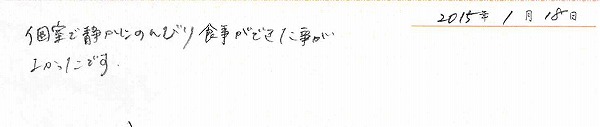 2015年1月18日
個室で静かにのんびり食事ができた事が
よかったです.